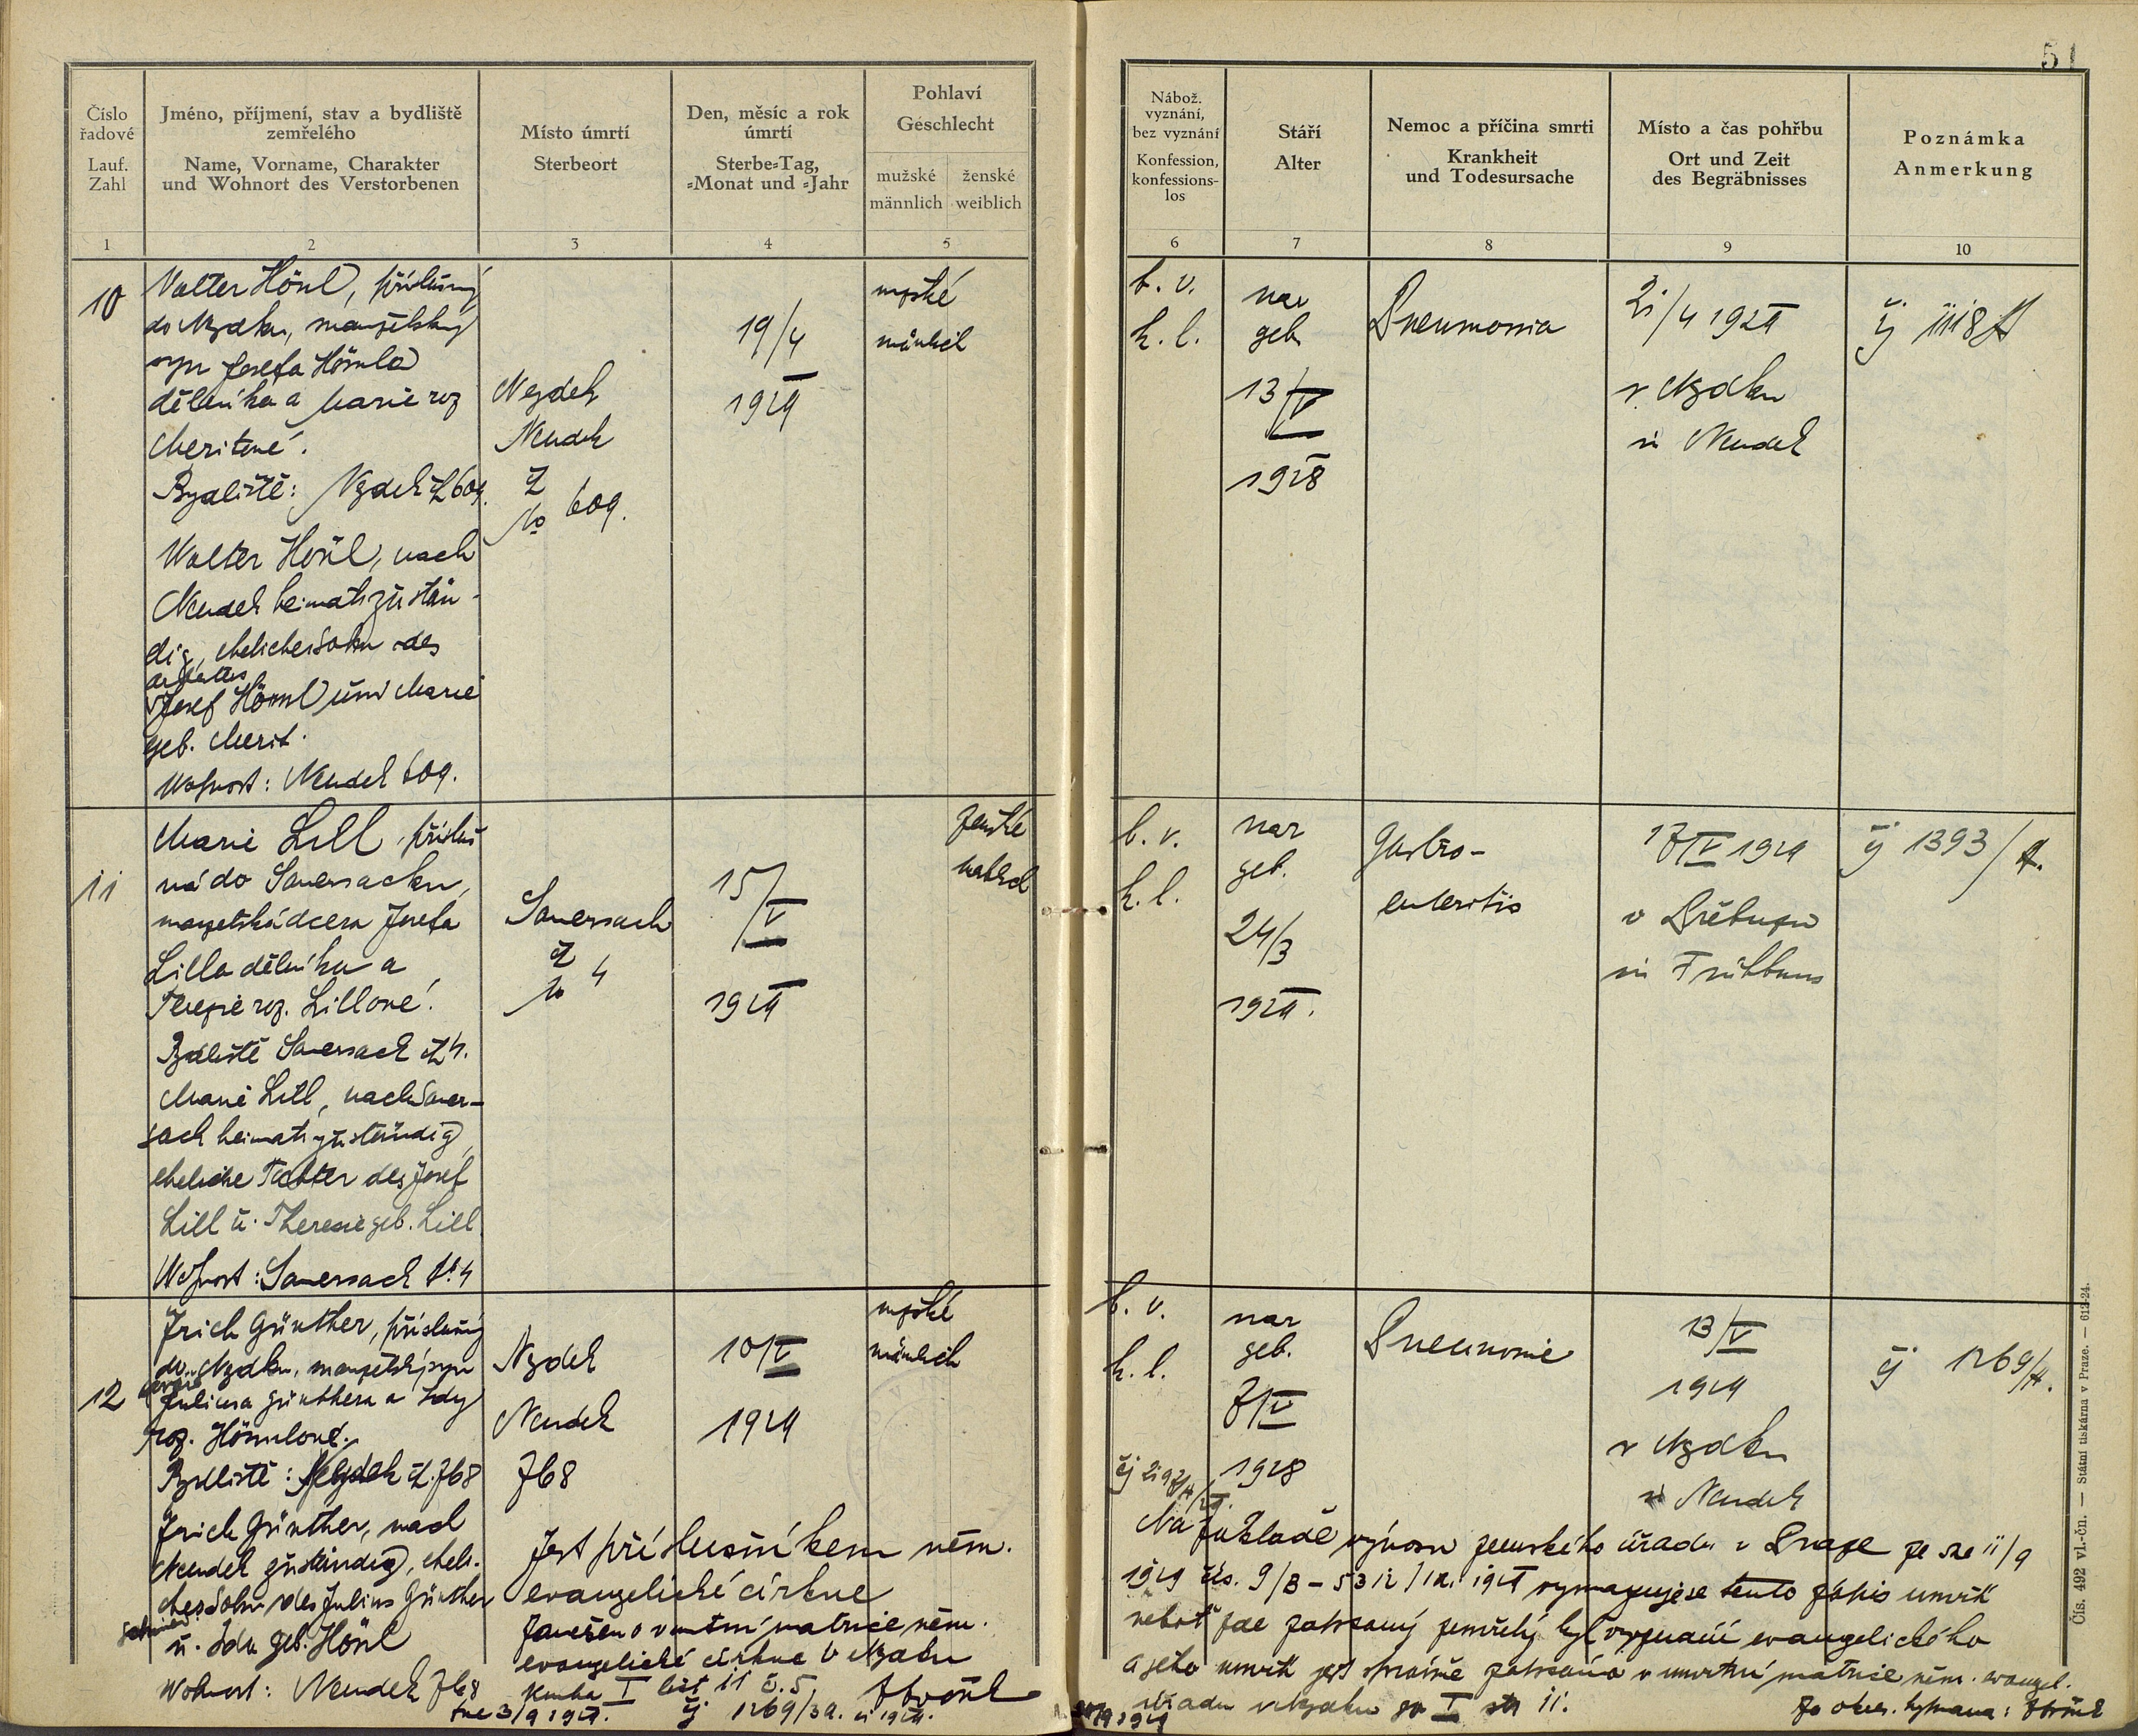 51
Číslo řadové
Lauf. Zahl
1
Jméno, příjmení, stav a bydliště
zemřelého
Name, Vorname, Charakter
und Wohnort des Verstorbenen
2
Místo úmrtí
Sterbeort
3
Den, měsíc a rok
úmrtí
Sterbe-Tag,
-Monat und -Jahr
4
Pohlaví
Geschlecht
mužské
männlich
ženské
weiblich
5
Nábož.
vyznání,
bez vyznání
Konfession,
konfessions-
los
6
Stáří
Alter
7
Nemoc a příčina smrti
Krankheit
und Todesursache
8
Místo a čas pohřbu
Ort und Zeit
des Begräbnisses
9
Poznámka
Anmerkung
10
10
Valter Hönl, příslušný
do Nejdku, manželský
syn Josefa Hönla
dělníka a Marie roz
Meritové.
Bydliště: Nejdek čp 609.
Walter Hönl, nach
Neudek heimatszustän-
dig, ehelicher Sohn des
Arbeiters
Josef Hönl und Marie
geb. Merit.
Wohnort: Neudek 609.
Nejdek
Neudek
čp
No 609.
19/4
1929
mužské
männlich
b. v.
k. l.
nar
geb
13/V
1928
Pneumonia
21/4 1929
v Nejdku
in Neudek
čj 1118/A
11
Marie Lill, přísluš
ná do Sauersacku,
manželská dcera Josefa
Lilla dělníka a
Terezie roz. Lillové.
Bydliště Sauersack čp 4.
Marie Lill, nach Sauer-
sack heimatszuständig,
eheliche Tochter des Josef
Lill u. Theresie geb. Lill
Wohnort: Sauersack No 4
Sauersack
čp
No 4
15/V
1929
ženské
weiblich
b. v.
k. l.
nar
geb.
24/3
1929.
Gastro-
enteritis
17/V 1929
v Přebuzu
in Frühbuss
čj 1393/A.
12
Erich Günther, příslušný
do Nejdku, manželský syn
Juliusa Günthera a Idy
roz. Hönlové.
Bydliště: Nejdek čp. 768
Erich Günther, nach
Neudek zuständig, eheli-
cher Sohn des Julius Günther
u. Ida geb. Hönl
Wohnort: Neudek 768
Nejdek
Neudek
768
10/V
1929
mužské
männlich
b. v.
k. l.
nar
geb.
7/V
1928
Pneumonie
13/V
1929
v Nejdku
in Neudek
čj 1269/A.
Jest příslušníkem něm.
evangelické církve
Zaneseno v úmrtní matrice něm.
evangelické církve v Nejdku
Kniha I list 11 č. 5.
dne 3/9 1929. čj 1269/3a.
Na základě výnosu zemského úřadu v Praze ze dne 11/9
1929 čís. 9/B - 5312/1 1929 vymazuje se tento zápis úmrtí
neboť zde zapsaný zemřelý byl vyznání evangelického
a jeho úmrtí jest správně zapsáno v úmrtní matrice něm. evangel.
úřadu v Nejdku sv I str 11.
Čís. 492 vl.-čn. — Státní tiskárna v Praze. — 612-24.